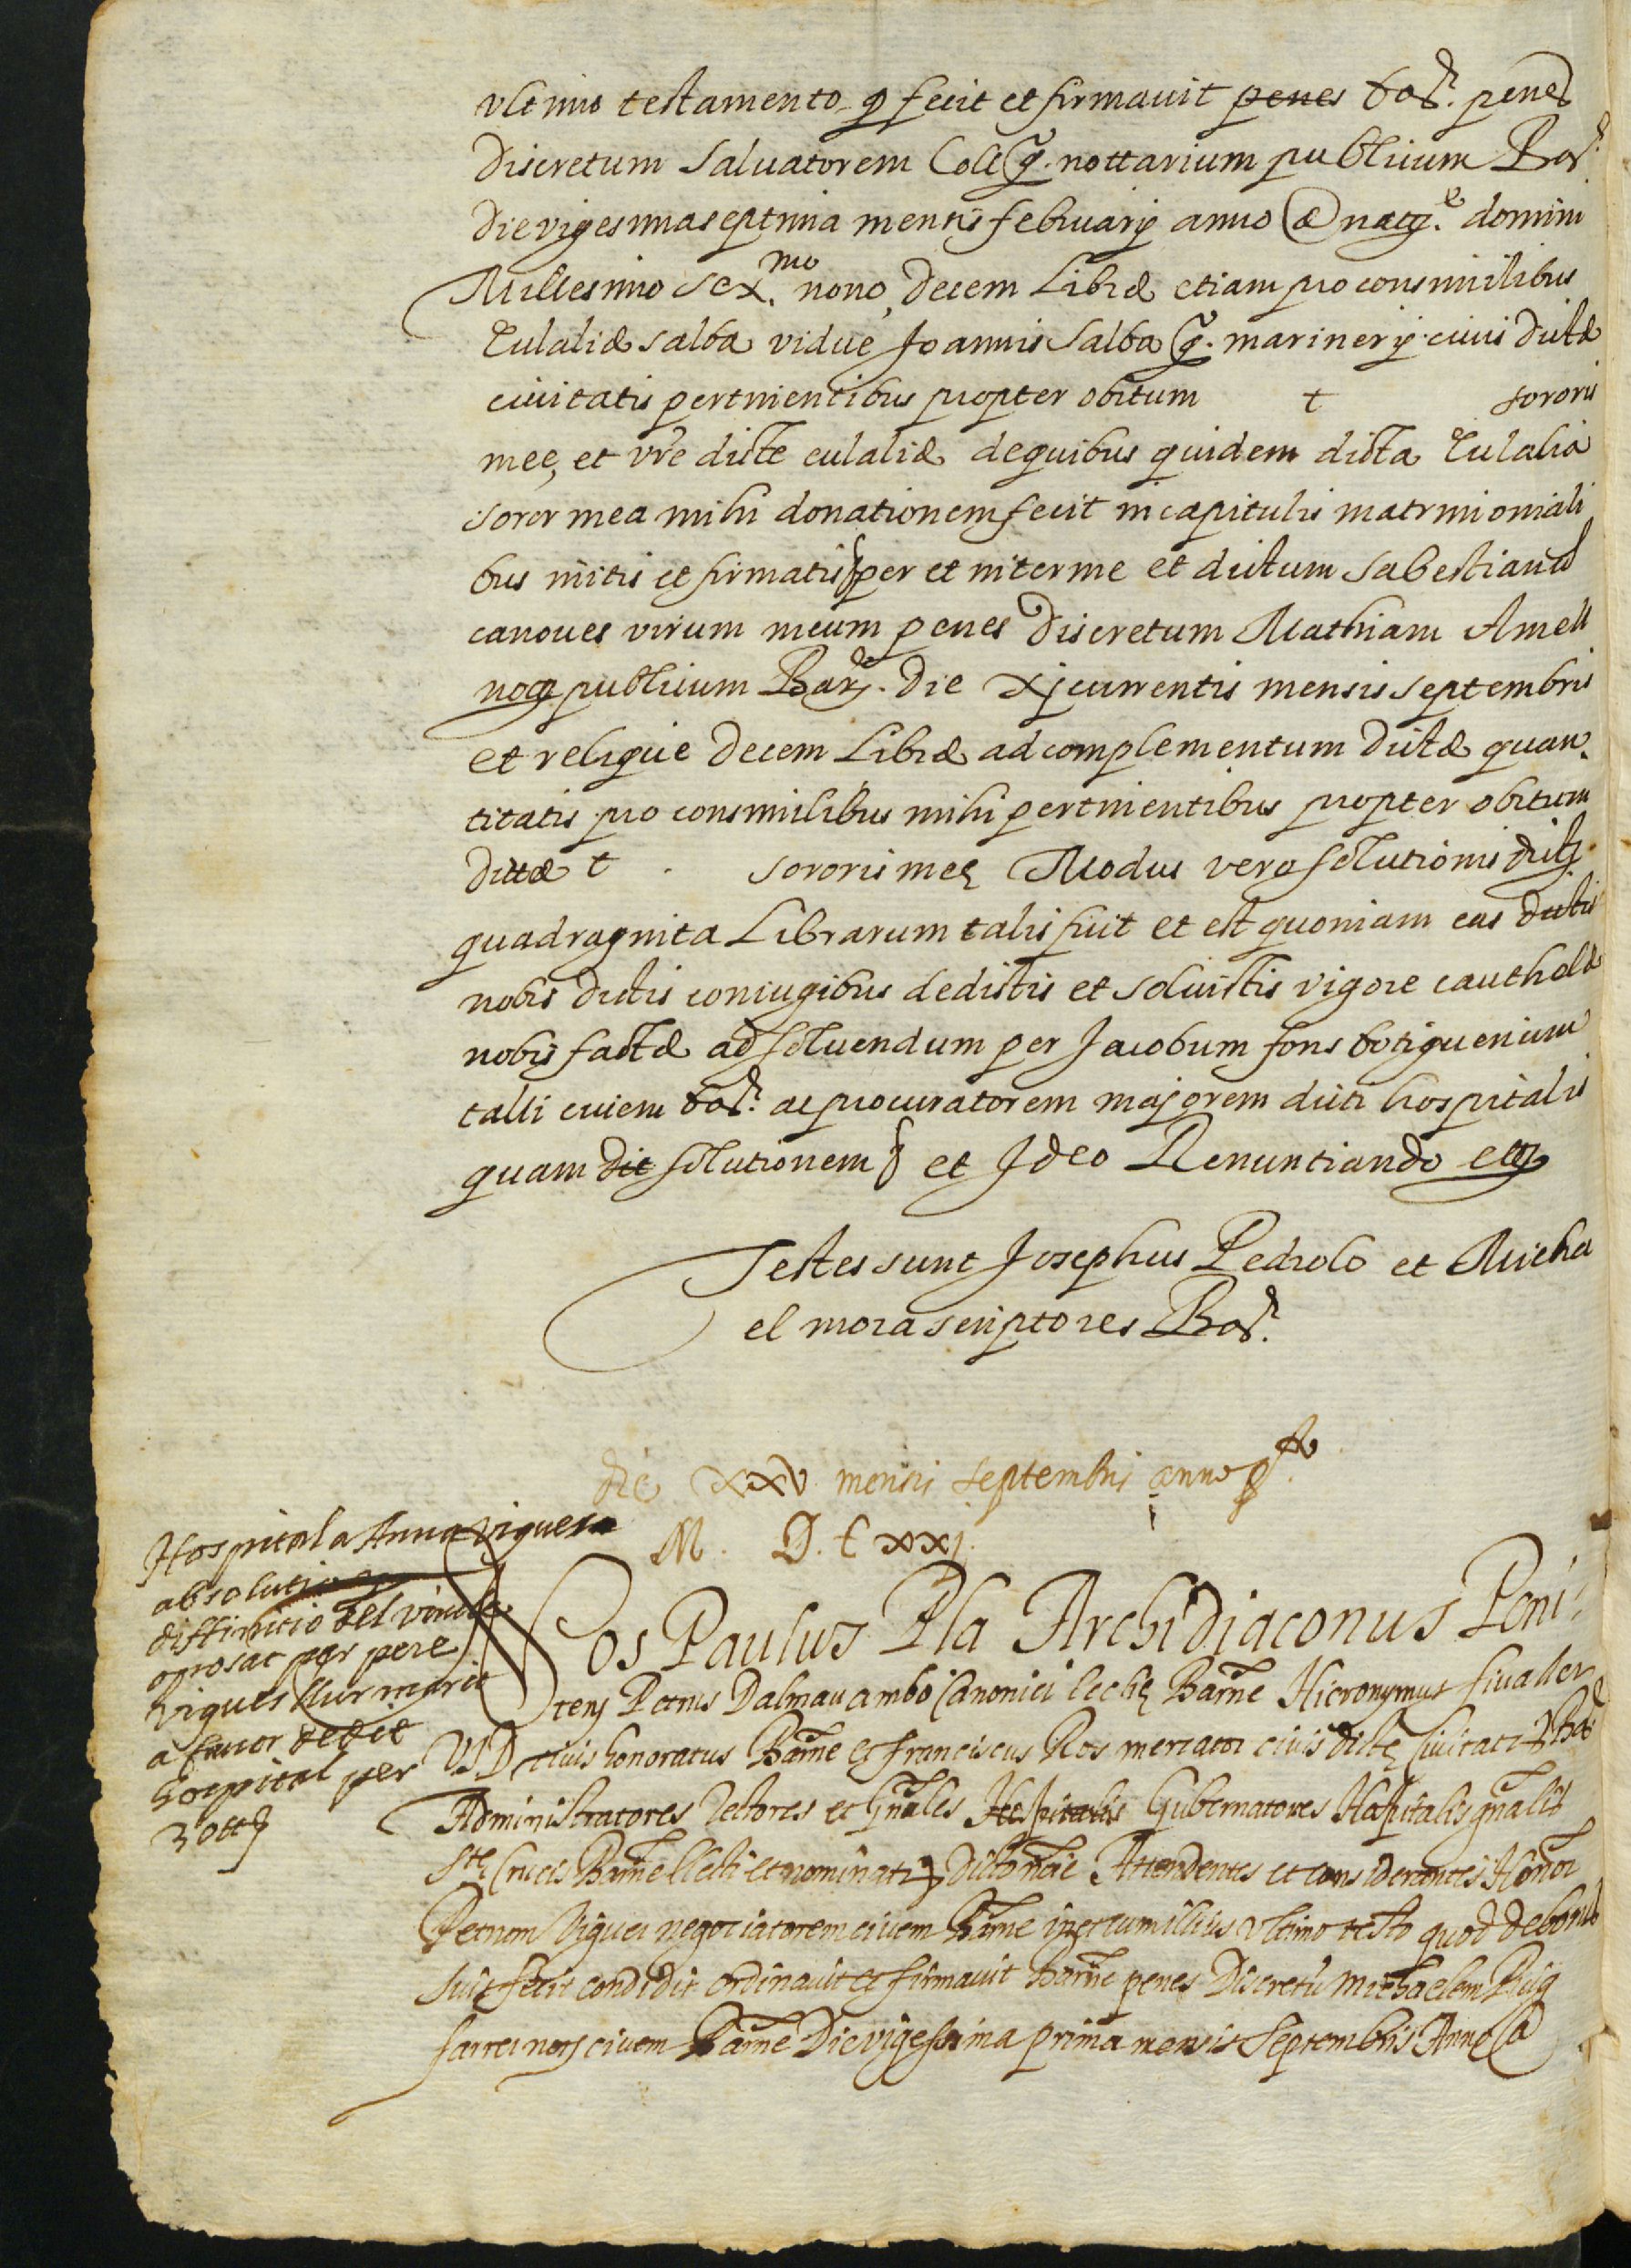 ultimo testamento q fecit et firmavit penes bar. penes
Discretum Salvatorem Coll q. nottarium publicum Bar.
Die vigesima septima mensis februarij anno a natte. domini
Millesimo sex.mo nono, decem Libræ etiam pro consimilibus
Eulaliæ Salba vidue Joannis Salba q. marinerij civis dictæ
civitatis pertinentibus propter obitum t sororis
mee, et vre dicte eulaliæ de quibus quidem dicta Eulalia
soror mea mihi donationem fecit in capitulis matrimoniali
bus initis et firmatis per et inter me et dictum Sabestianum
canoves virum meum penes Discretum Mathiam Amell
not publicum Bar. die xj currentis mensis septembris
et relique decem Libræ ad complementum dictæ quan
titatis pro consimilibus mihi pertinentibus propter obitum
dictæ t . sororis meę Modus vero solutionis dict.
quadraginta Librarum talis fuit et est quoniam eas dictis
nobis dictis coniugibus dedistis et solvistis vigore cauthelæ
nobis factæ ad solvendum per Jacobum fons botiguerium
talli civem bar. ac procuratorem majorem dicti hospitalis
quam dit solutionem et Ideo Renuntiando etc
Testes sunt Josephus Pedrolo et Micha
el mora scriptores Bar.
die xxv mensis septembris anno p.to
M. D. C xxj.
Hospital a Anna Viguera
absolutio
diffinitio del vincle
oposat per pere
Vigues llur marit
a favor de dit
hospital per
30 ll
Nos Paulus Pla Archidiaconus Peni-
tens Petrus Dalmau ambo Canonici Ecclię Barne Hieronymus fivaller
VJD civis honoratus Barne et franciscus Ros mercator civis dictę civitatis
Administratores Rectores et Gnales Hospitalis Gubernatores Hospitalis gnalis
Stę Crucis Barne Electi et nominati Dicto noie Attendentes et considerantes Honor
Petrum Viguer negociatorem civem Barne in eius ultimo testo quod de bonis
suis fecit condidit ordinavit et firmavit Barne penes Discretu Michaelem Puig
not civem Barne Die vigessima prima mensis Septembris Anno a